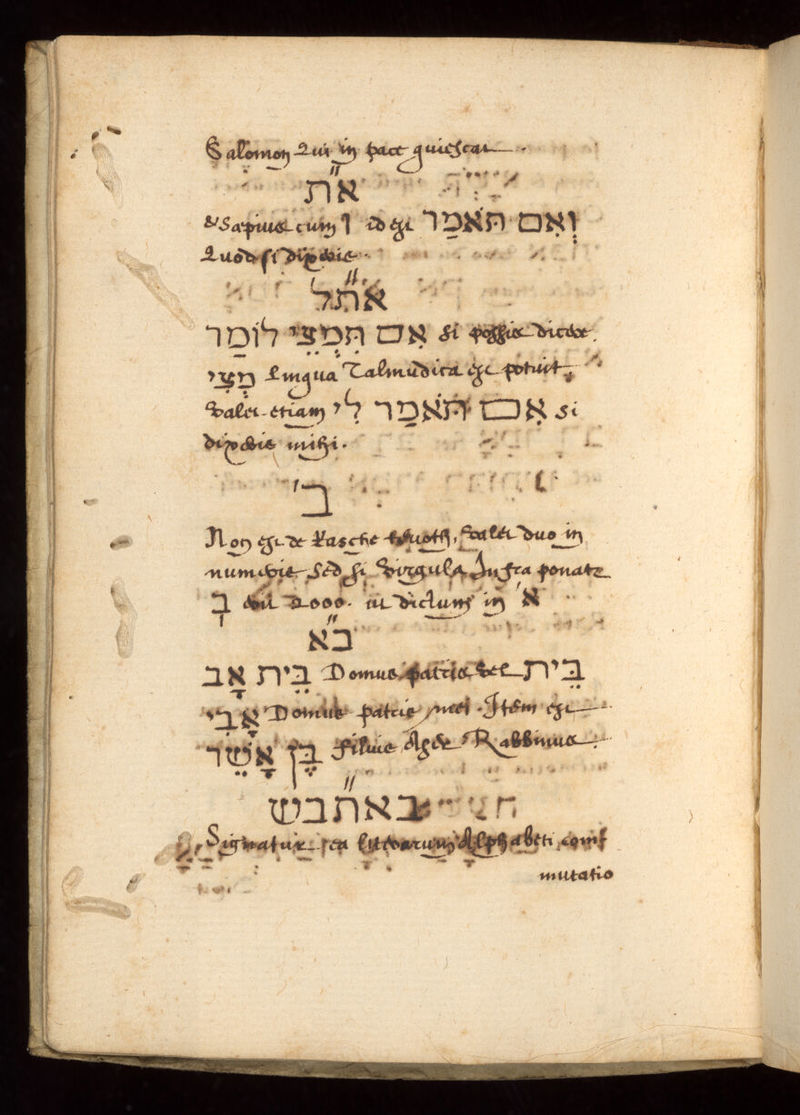 Salomon Qui in pace quiescat
א״ת
& Sæpius cum ו id est וְאִם תֹּאמַר
Quod si dixeris
אתּ״ל
אִם תִּמְצֵי לוֹמַר si possis dicere.
מָצֵי lingua Talmudica est potuit,
Valet etiam אִם תֹּאמַר לִי si
dixeris mihi.
ב׳
Non est de Rasche tevoth, valet duo in
numeris sed si Virgula Infra ponatr
ב 2000. ut dictum in א׳
ב״א
בֵּית אָב Domus patris vel בֵּית
אָבִי Domus patris mei. Item est
בֶּן אָשֵׁר filius Aser Rabbinus
באת״בש
Signatur ea literarum Alphabeti com
mutatio